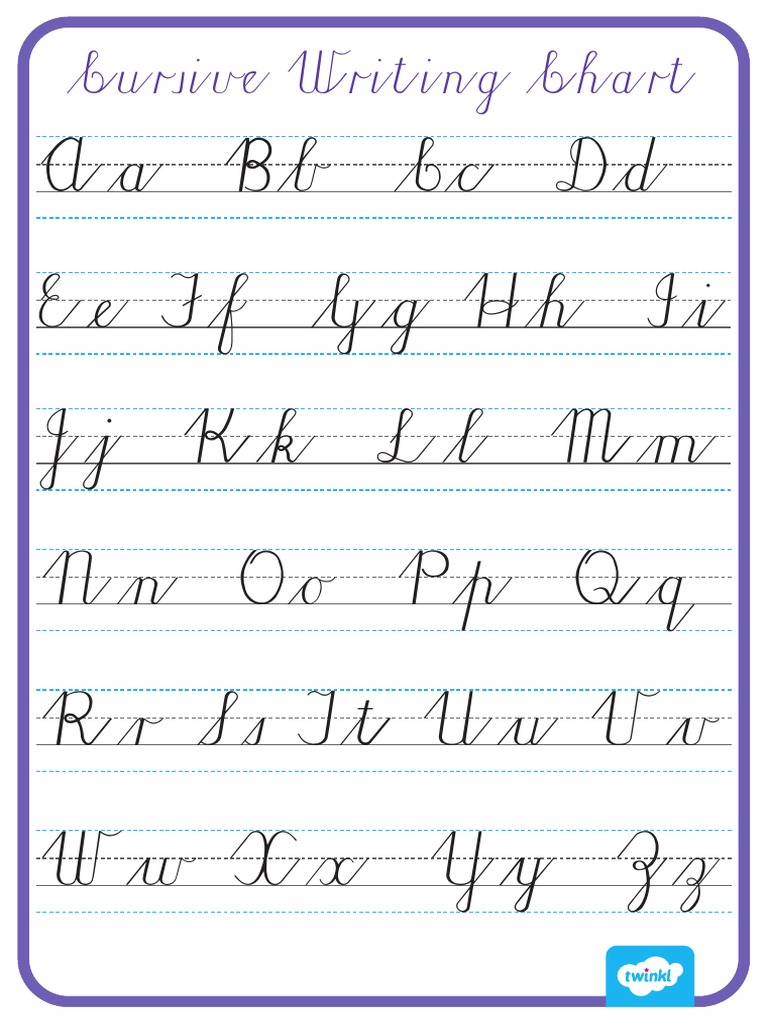 Cursive Writing Chart
Aa Bb Cc Dd
Ee Ff Gg Hh Ii
Jj Kk Ll Mm
Nn Oo Pp Qq
Rr Ss Tt Uu Vv
Ww Xx Yy Zz
twinkl